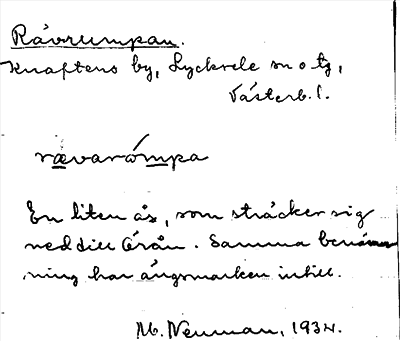 Rävrumpan.
Knaftens by, Lycksele sn o tg,
Västerb. l.
rævarómpa
En liten ås, som sträcker sig
ned till Örån. Samma benäm-
ning har ängsmarken intill.
M. Neuman, 1934.